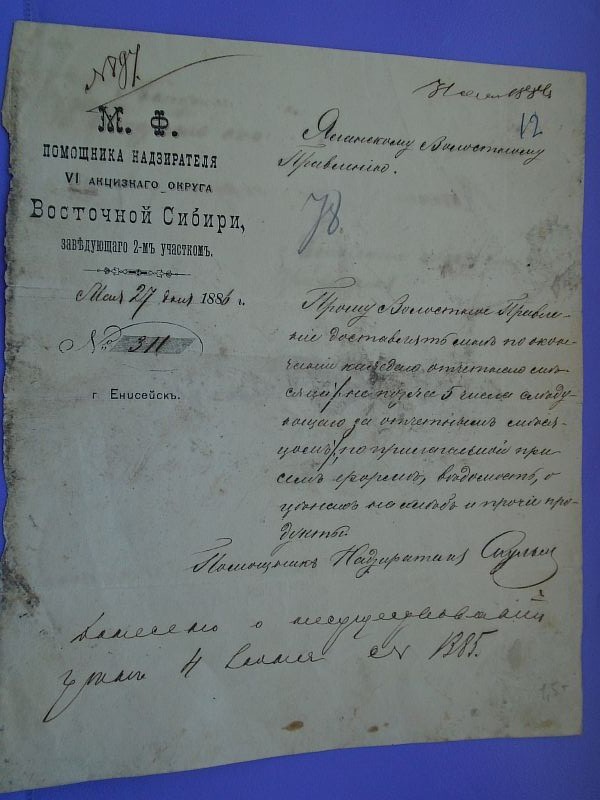 № 897.
12
М. Ф.
ПОМОЩНИКА НАДЗИРАТЕЛЯ
VI АКЦИЗНАГО ОКРУГА
Восточной Сибири,
завѣдующаго 2-мъ участкомъ.
Мая 27 дня 1886 г.
№ 311
г. Енисейскъ.
Яланскому Волостному
Правленію.
78.
Прошу Волостное Правле-
ніе доставлять мнѣ по окон-
чаніи каждаго отчетнаго мѣ-
сяца (не позже 5 числа слѣду-
ющаго за отчетнымъ мѣся-
цомъ), по прилагаемой при
семъ формѣ, вѣдомость о
цѣнахъ на хлѣбъ и прочіе про-
дукты.
Помощникъ Надзирателя
Донесено о
4 Іюня № 1385.